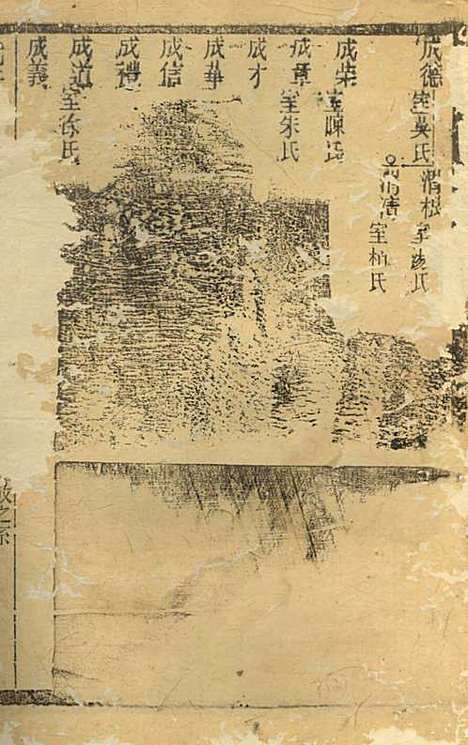 成德 室吳氏
渭根 室
室柏氏
成榮 室陳氏
成章 室朱氏
成才
成華
成信
成禮
成道 室徐氏
成義